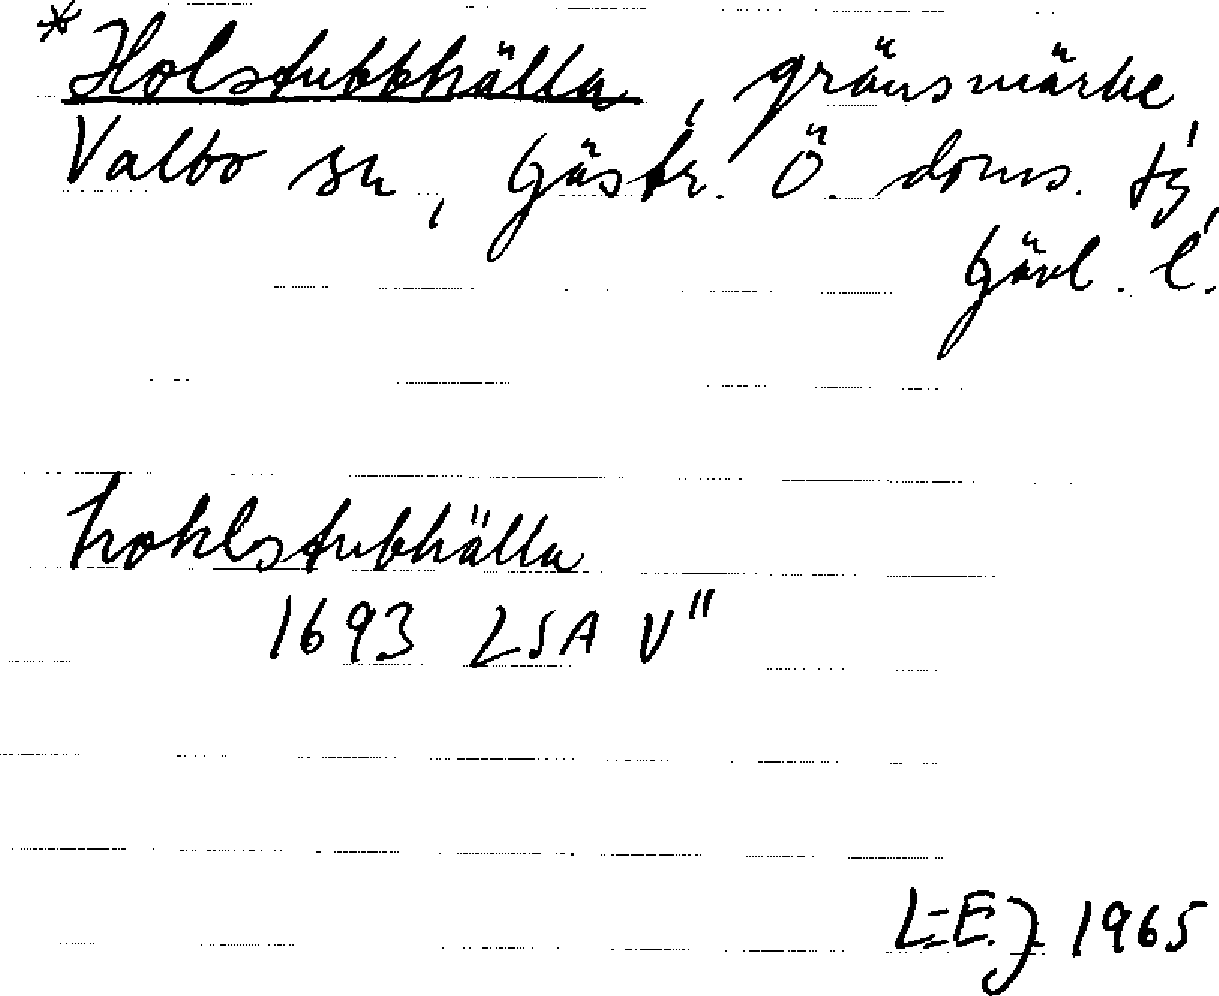 *Holstubbhälla, gränsmärke,
Valbo sn, Gästr. Ö. doms. tg,
Gävl. l.
hohlstubhälla
1693 LSA V"
L-E.J 1965